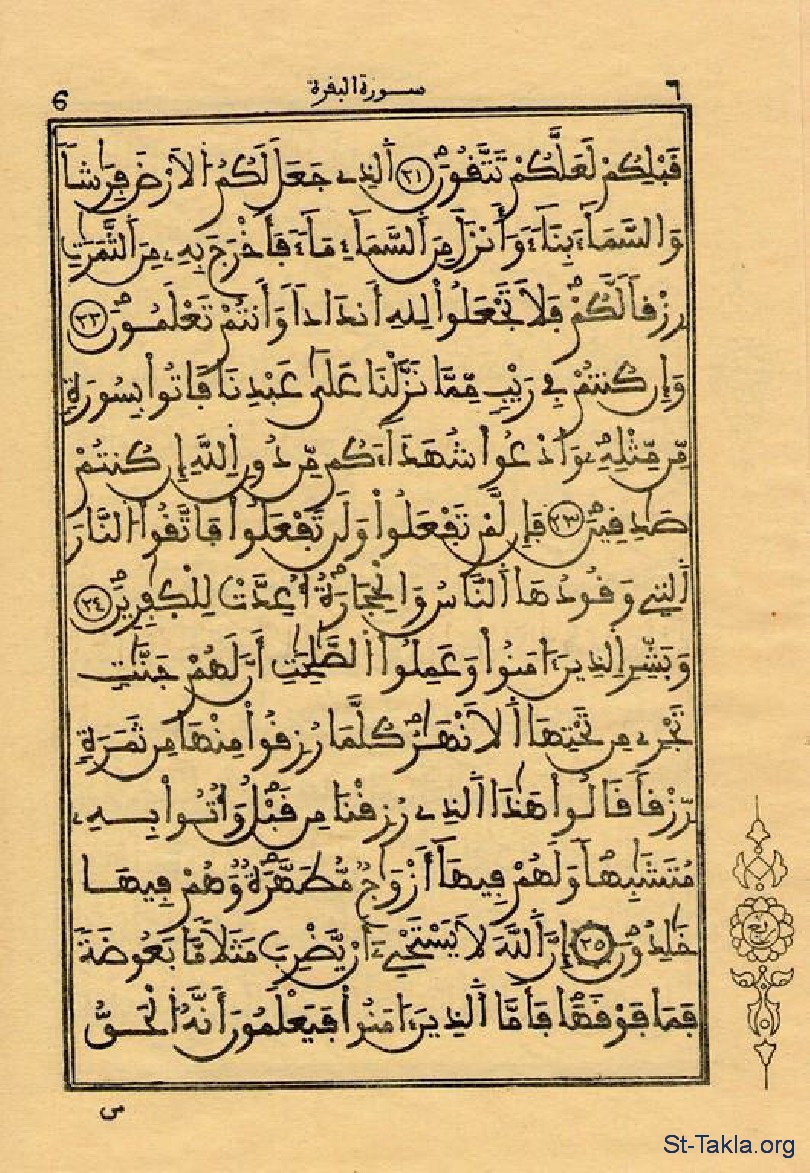 6 سورة البقرة ٦
قَبْلِكُمْ لَعَلَّكُمْ تَتَّقُونَ ٢١ اَلذِے جَعَلَ لَكُمُ الَارْضَ فِرَٰشاً
وَالسَّمَآءَ بِنَآءً وَأَنزَلَ مِنَ اَلسَّمَآءِ مَآءً فَأَخْرَجَ بِهِۦ مِنَ اَلثَّمَرَٰتِ
رِزْقاً لَّكُمْ فَلَا تَجْعَلُواْ لِلهِ أَندَاداً وَأَنتُمْ تَعْلَمُونَ ٢٢
وَإِن كُنتُمْ فِے رَيْبٍ مِّمَّا نَزَّلْنَا عَلَىٰ عَبْدِنَا فَاتُواْ بِسُورَةٍ
مِّن مِّثْلِهِۦ وَادْعُواْ شُهَدَآءَكُم مِّن دُونِ اِللَّهِ إِن كُنتُمْ
صَٰدِقِينَ ٢٣ فَإِن لَّمْ تَفْعَلُواْ وَلَن تَفْعَلُواْ فَاتَّقُواْ النَّارَ
اَلتِے وَقُودُهَا اَلنَّاسُ وَالْحِجَارَةُ أُعِدَّتْ لِلْكٰفِرِينَ ٢٤
وَبَشِّرِ اِلذِينَ ءَامَنُواْ وَعَمِلُواْ اُلصَّٰلِحَٰتِ أَنَّ لَهُمْ جَنَّٰتٍ
تَجْرِے مِن تَحْتِهَا اَلَانْهَٰرُ كُلَّمَا رُزِقُواْ مِنْهَا مِن ثَمَرَةٍ
رِّزْقاً قَالُواْ هَٰذَا اَلذِے رُزِقْنَا مِن قَبْلُ وَأُتُواْ بِهِۦ
مُتَشَٰبِهاً وَلَهُمْ فِيهَا أَزْوَٰجٌ مُّطَهَّرَةٌ وَهُمْ فِيهَا
خَٰلِدُونَ ٢٥ إِنَّ اَللَّهَ لَا يَسْتَحْيِۦ أَنْ يَّضْرِبَ مَثَلًا مَّا بَعُوضَةً
فَمَا فَوْقَهَا فَأَمَّا اَلذِينَ ءَامَنُواْ فَيَعْلَمُونَ أَنَّهُ اُلْحَقُّ
من
St-Takla.org